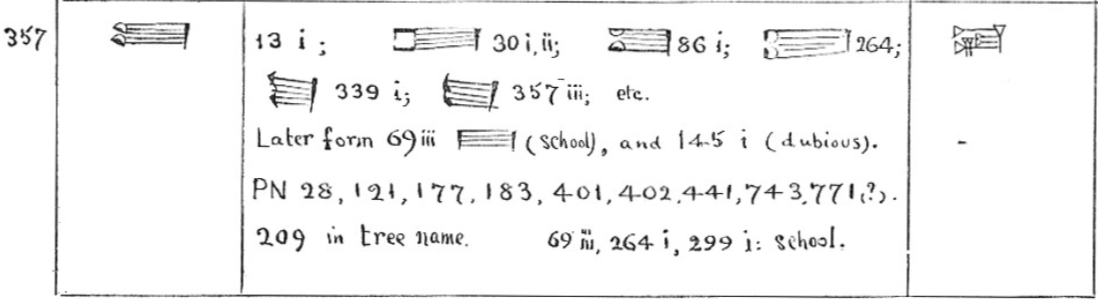 357
13 i; 30 i, ii; 86 i; 264;
339 i; 357 iii; etc.
Later form 69 iii (school), and 145 i (dubious).
PN 28, 121, 177, 183, 401, 402, 441, 743, 771(?).
209 in tree name. 69 iii, 264 i, 299 i: school.
-